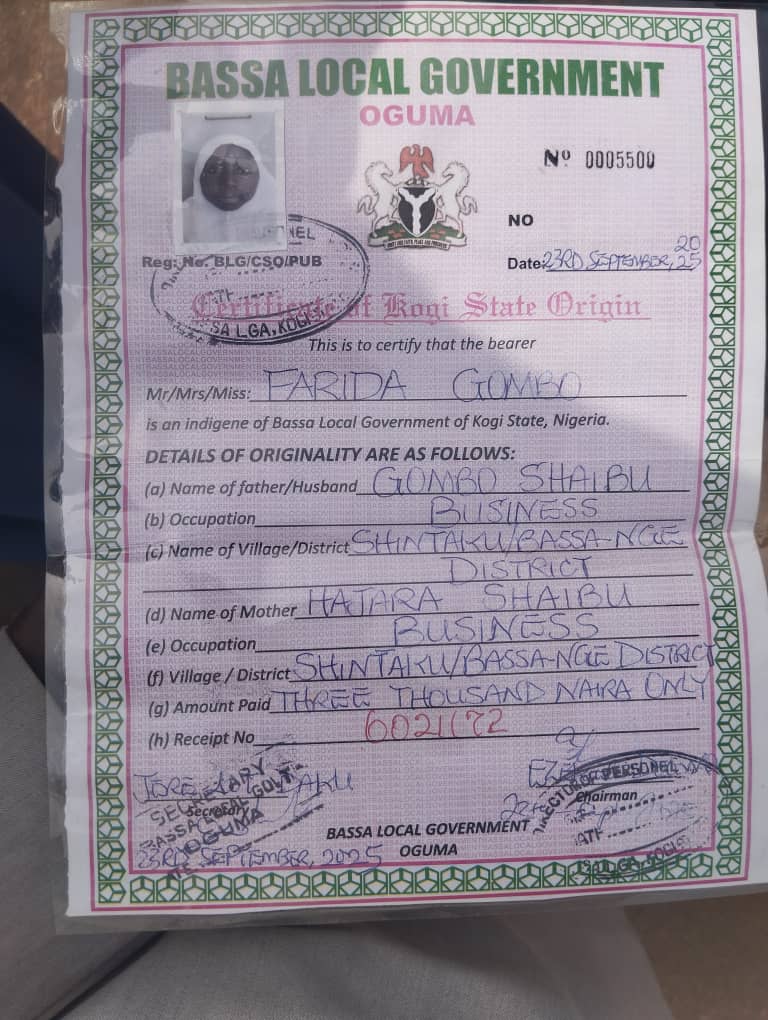 BASSA LOCAL GOVERNMENT
OGUMA
Nº 0005500
NO
Reg: No. BLG/CSO/PUB
Date: 23RD SEPTEMBER, 2025
Certificate of Kogi State Origin
SA L.GA, KOGI
This is to certify that the bearer
Mr/Mrs/Miss: FARIDA GOMBO
is an indigene of Bassa Local Government of Kogi State, Nigeria.
DETAILS OF ORIGINALITY ARE AS FOLLOWS:
(a) Name of father/Husband GOMBO SHAIBU
(b) Occupation BUSINESS
(c) Name of Village/District SHINTAKU/BASSA-NGE
DISTRICT
(d) Name of Mother HAJARA SHAIBU
(e) Occupation BUSINESS
(f) Village / District SHINTAKU/BASSA-NGE DISTRICT
(g) Amount Paid THREE THOUSAND NAIRA ONLY
(h) Receipt No 6021172
SECRETARY
BASSA LOCAL GOVT.
OGUMA
Secretary
DIRECTOR OF PERSONEL
Chairman
BASSA LOCAL GOVERNMENT
OGUMA
23RD SEPTEMBER, 2025